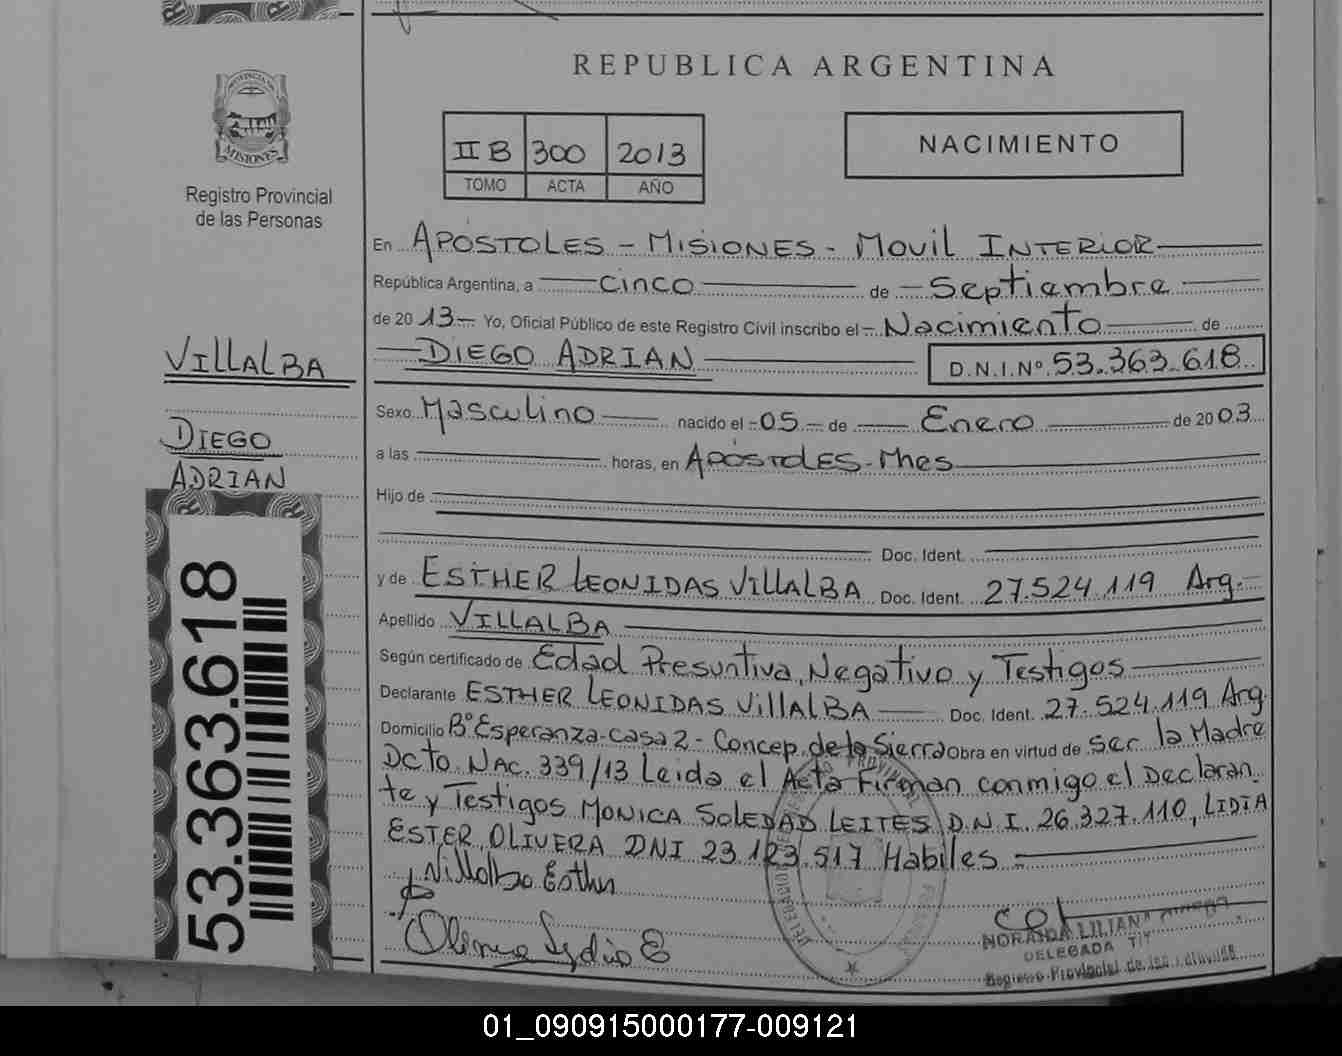 REPUBLICA ARGENTINA
PROVINCIA
MISIONES
Registro Provincial
de las Personas
II B 300 2013
TOMO ACTA AÑO
NACIMIENTO
En APÓSTOLES - MISIONES - MOVIL INTERIOR
República Argentina, a cinco de Septiembre
de 2013 Yo, Oficial Público de este Registro Civil inscribo el Nacimiento de
DIEGO ADRIAN D.N.I.Nº 53.363.618
VILLALBA
DIEGO
ADRIAN
Sexo Masculino nacido el 05 de Enero de 2003
a las horas, en APÓSTOLES - Mnes
Hijo de
Doc. Ident.
y de ESTHER LEONIDAS VILLALBA Doc. Ident. 27.524.119 Arg.
Apellido VILLALBA
Según certificado de Edad Presuntiva, Negativo y Testigos
Declarante ESTHER LEONIDAS VILLALBA Doc. Ident. 27.524.119 Arg.
Domicilio Bº Esperanza - casa 2 - Concep. de la Sierra Obra en virtud de ser la Madre
Dcto. NAC. 339/13 Leida el Acta Firman conmigo el Declaran
te y Testigos MONICA SOLEDAD LEITES D.N.I. 26.327.110, LIDIA
ESTER OLIVERA DNI 23.123.517 Habiles =
Villalba Esther
Olivera Lydia E
53.363.618
NORAIDA LILIANA
DELEGADA TIT
Registro Provincial de las
01_090915000177-009121